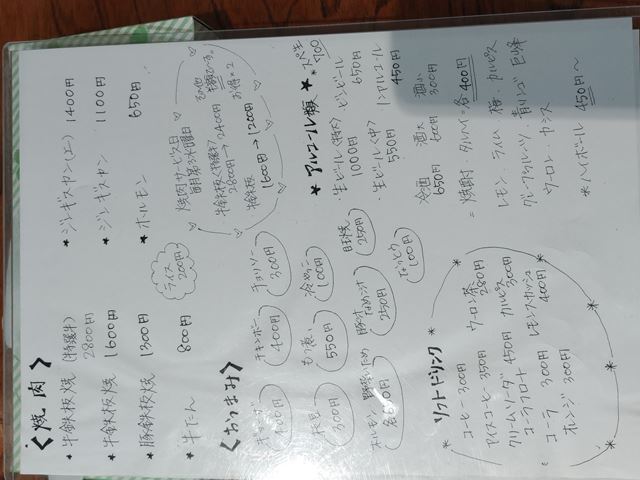 〈焼肉〉
* 牛鉄板焼(特選牛)
2800円
* 牛鉄板焼 1600円
* 豚鉄板焼 1300円
* 牛たん 800円
* ジンギスカン(上) 1400円
* ジンギスカン 1100円
* ホルモン 650円
ライス
200円
焼肉サービス日
毎月第3水曜日
牛鉄板(特選牛)
2800円→2400円
牛鉄板
1600円→1200円
お得×2
〈おつまみ〉
チャンボー
400円
チョリソー
300円
枝豆
300円
もつ煮
550円
冷やっこ
100円
目玉焼
250円
ホルモン野菜いため
250円
なっとう
100円
* アルコール類 *
・生ビール(特大)
1000円
・生ビール(中)
550円
・ビンビール
650円
・ノンアルコール
450円
冷酒
650円
酒大
600円
酒小
300円
焼酎・タルハイ=各400円
レモン、ライム、梅、カルピス
グレープフルーツ、青リンゴ、巨峰
ウーロン、カシス
*ハイボール 450円〜
* ソフトドリンク *
コーヒー 300円
アイスコーヒー 350円
クリームソーダ 450円
コーラフロート
コーラ 300円
オレンジ 300円
ウーロン茶
280円
カルピス
300円
レモンスカッシュ
400円